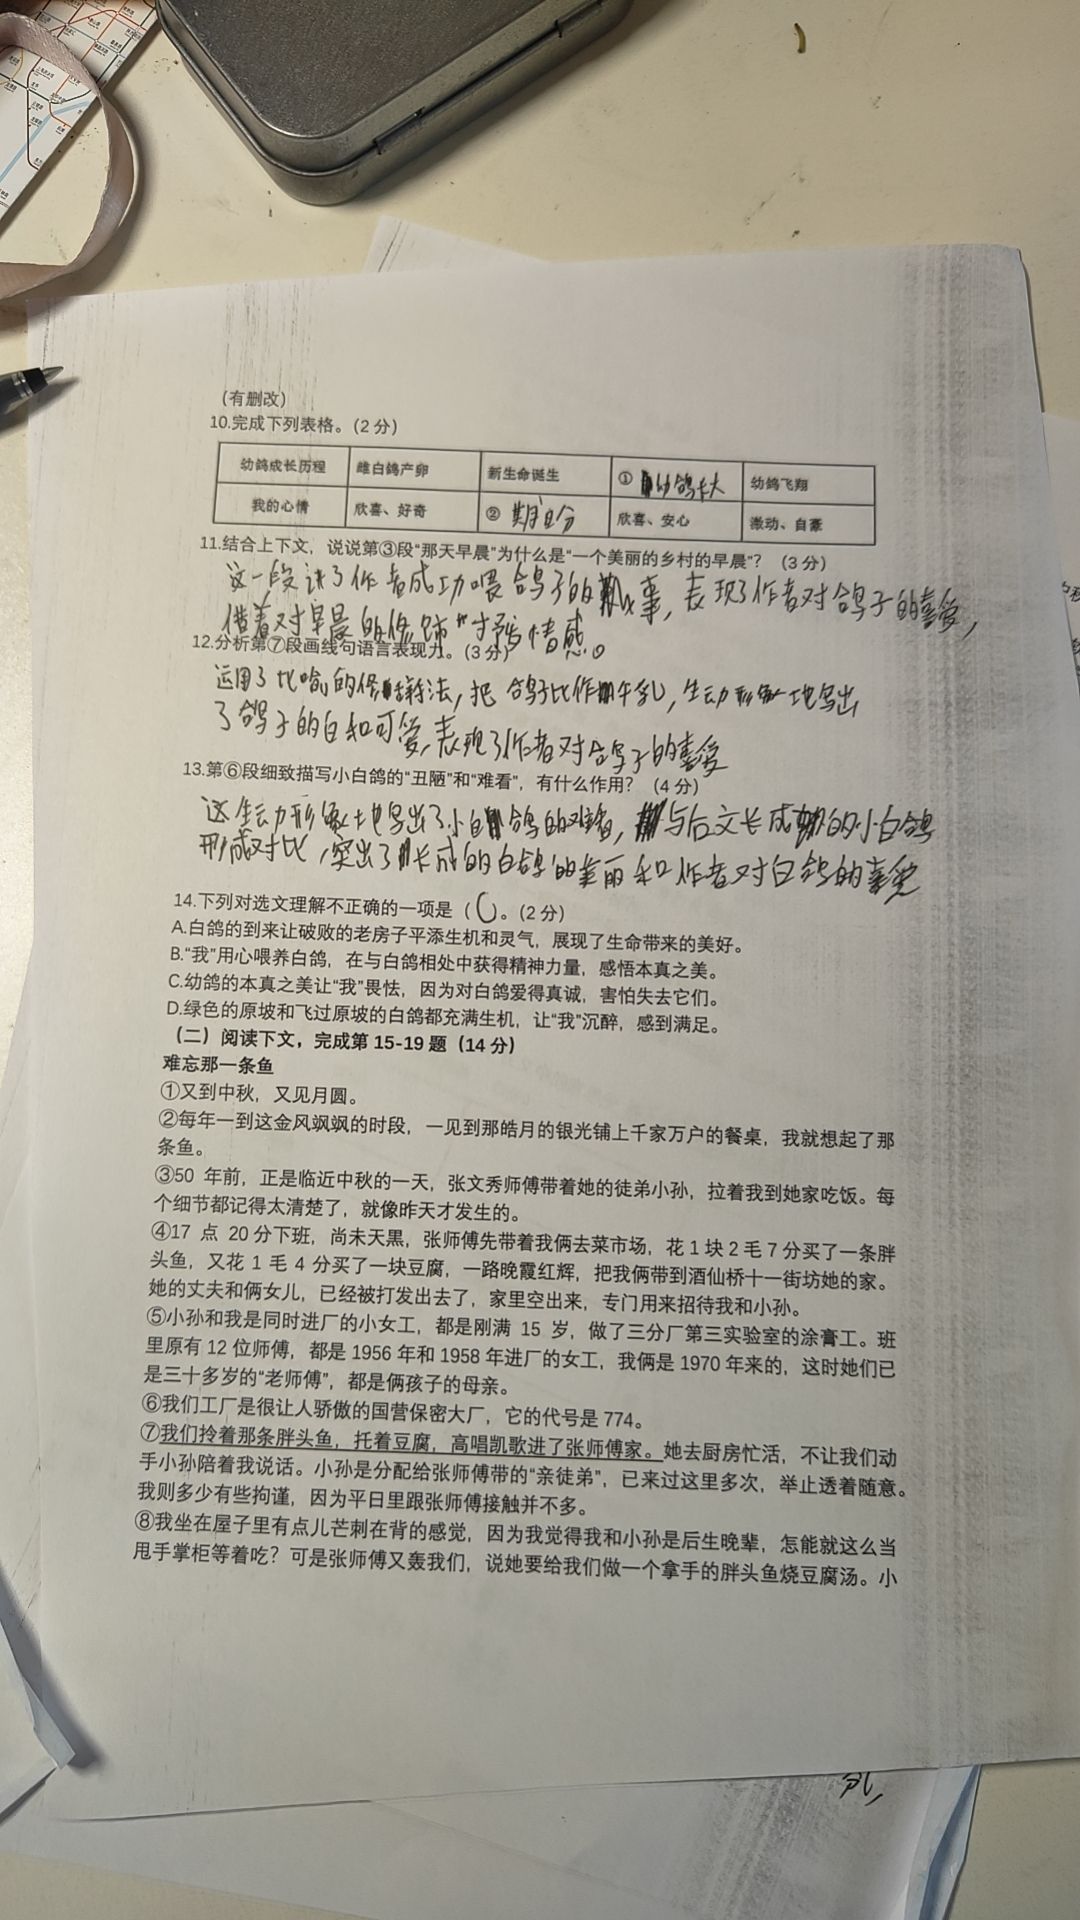 (有删改)
10.完成下列表格。(2 分)
幼鸽成长历程 雌白鸽产卵 新生命诞生 ① 幼鸽长大 幼鸽飞翔
我的心情 欣喜、好奇 ② 欣喜、安心 激动、自豪
11.结合上下文，说说第③段“那天早晨”为什么是“一个美丽的乡村的早晨”？ (3 分)
这一段讲了作者成功喂鸽子的故事，表现了作者对鸽子的喜爱，
借着对早晨的修饰 抒写情感。
12.分析第⑦段画线句语言表现力。(3 分)
运用了比喻的修辞手法，把鸽子比作牛乳，生动形象地写出
了鸽子的白和可爱，表现了作者对鸽子的喜爱
13.第⑥段细致描写小白鸽的“丑陋”和“难看”，有什么作用？ (4 分)
这生动形象地写出了小白鸽的难看，与后文长成的小白鸽
形成对比，突出了长成的白鸽的美丽和作者对白鸽的喜爱
14.下列对选文理解不正确的一项是（ C 。(2 分)
A.白鸽的到来让破败的老房子平添生机和灵气，展现了生命带来的美好。
B.“我”用心喂养白鸽，在与白鸽相处中获得精神力量，感悟本真之美。
C.幼鸽的本真之美让“我”畏怯，因为对白鸽爱得真诚，害怕失去它们。
D.绿色的原坡和飞过原坡的白鸽都充满生机，让“我”沉醉，感到满足。
（二）阅读下文，完成第 15-19 题（14 分）
难忘那一条鱼
①又到中秋，又见月圆。
②每年一到这金风飒飒的时段，一见到那皓月的银光铺上千家万户的餐桌，我就想起了那
条鱼。
③50 年前，正是临近中秋的一天，张文秀师傅带着她的徒弟小孙，拉着我到她家吃饭。每
个细节都记得太清楚了，就像昨天才发生的。
④17 点 20 分下班，尚未天黑，张师傅先带着我俩去菜市场，花 1 块 2 毛 7 分买了一条胖
头鱼，又花 1 毛 4 分买了一块豆腐，一路晚霞红辉，把我俩带到酒仙桥十一街坊她的家。
她的丈夫和俩女儿，已经被打发出去了，家里空出来，专门用来招待我和小孙。
⑤小孙和我是同时进厂的小女工，都是刚满 15 岁，做了三分厂第三实验室的涂膏工。班
里原有 12 位师傅，都是 1956 年和 1958 年进厂的女工，我俩是 1970 年来的，这时她们已
是三十多岁的“老师傅”，都是俩孩子的母亲。
⑥我们工厂是很让人骄傲的国营保密大厂，它的代号是 774。
⑦我们拎着那条胖头鱼，托着豆腐，高唱凯歌进了张师傅家。她去厨房忙活，不让我们动
手小孙陪着我说话。小孙是分配给张师傅带的“亲徒弟”，已来过这里多次，举止透着随意。
我则多少有些拘谨，因为平日里跟张师傅接触并不多。
⑧我坐在屋子里有点儿芒刺在背的感觉，因为我觉得我和小孙是后生晚辈，怎能就这么当
甩手掌柜等着吃？可是张师傅又轰我们，说她要给我们做一个拿手的胖头鱼烧豆腐汤。小